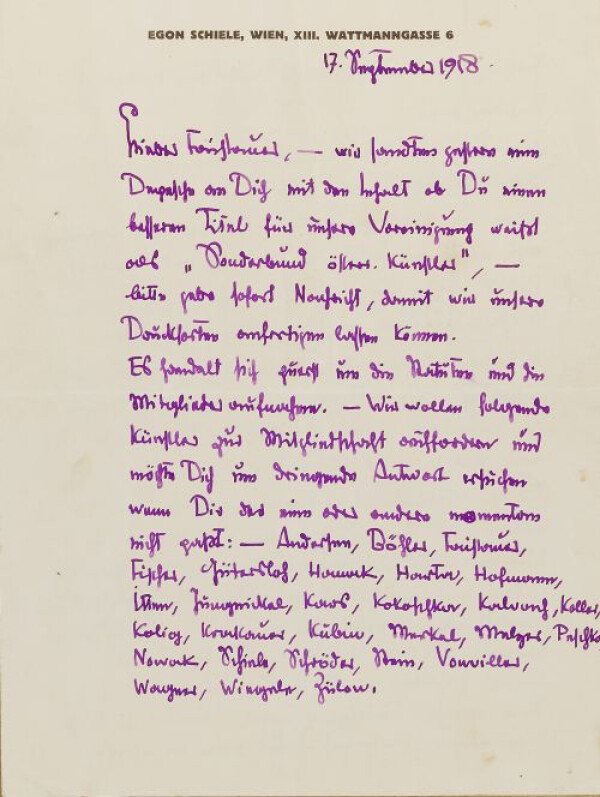 EGON SCHIELE, WIEN, XIII. WATTMANNGASSE 6
17. September 1918.
Lieber Faistauer, — wir sandten gestern eine
Depesche an Dich mit den Inhalt ob Du einen
besseren Titel für unsere Vereinigung weißt
als „Sonderbund österr. Künstler", —
bitte gebe sofort Nachricht, damit wir unsere
Drucksorten anfertigen lassen können.
Es handelt sich zuerst um die Statuten und die
Mitgliederaufnahme. — Wir wollen folgende
Künstler zur Mitgliedschaft auffordern und
möchte Dich um dringende Antwort ersuchen
wenn Dir der eine oder andere momentan
nicht paßt: — Andersen, Böhler, Faistauer,
Fischer, Gütersloh, Hanak, Harta, Hofmann,
Itten, Jungnickel, Kars, Kokoschka, Kalvach, Koller,
Kolig, Krakauer, Kubin, Merkel, Melzer, Peschka
Nowak, Schiele, Schröder, Stein, Vonwiller,
Wagner, Wiegele, Zülow.